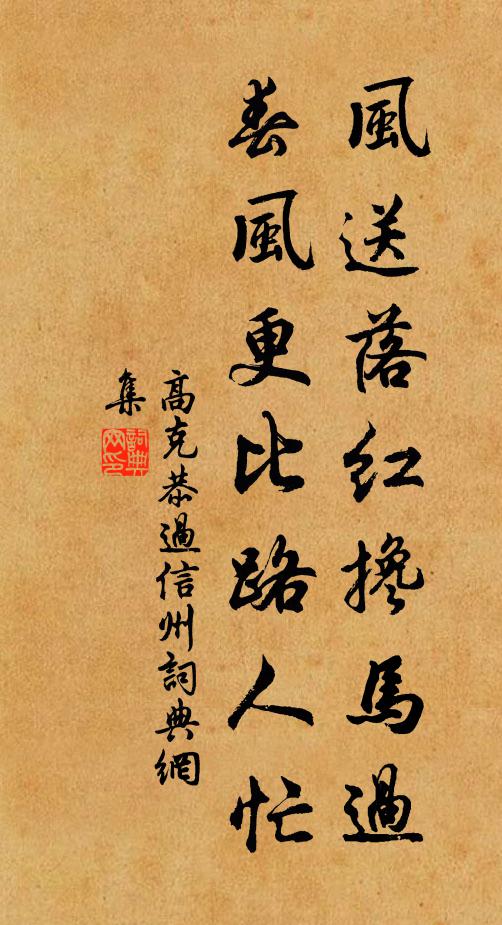 風送落紅搀馬過
春風更比路人忙
高克恭過信州詞典網
集
詞典
网印